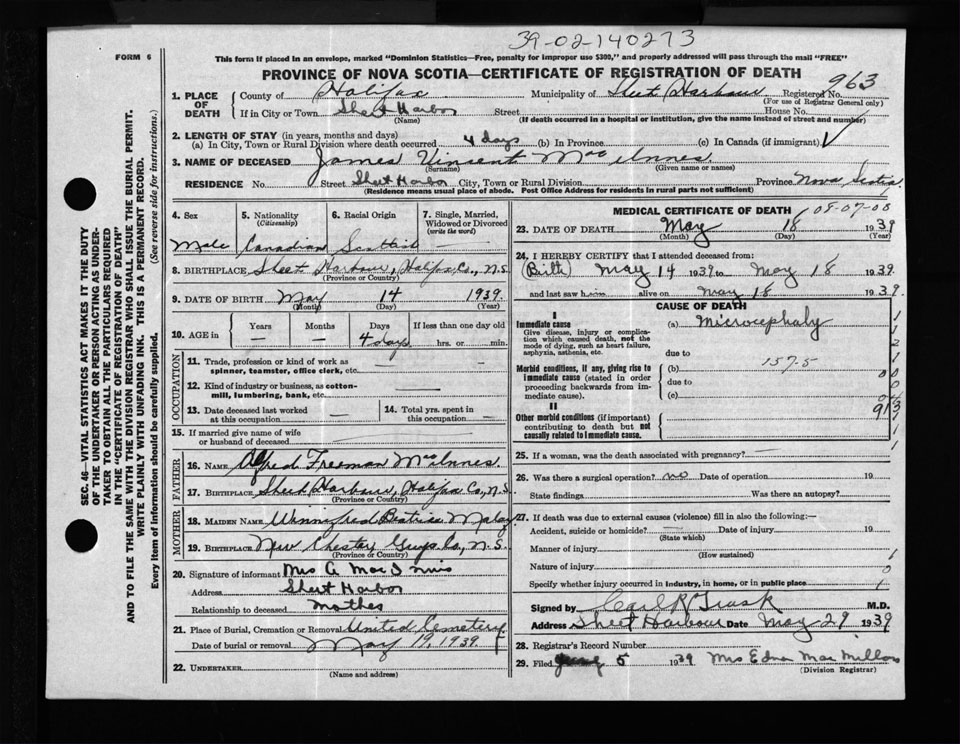 39-02-140273
FORM 6
This form if placed in an envelope, marked "Dominion Statistics—Free, penalty for improper use $300," and properly addressed will pass through the mail "FREE"
PROVINCE OF NOVA SCOTIA—CERTIFICATE OF REGISTRATION OF DEATH
963
1. PLACE OF DEATH
County of Halifax Municipality of Sheet Harbour Registered No.
(For use of Registrar General only)
If in City or Town Sheet Harbor Street House No.
(Name) (If death occurred in a hospital or institution, give the name instead of street and number)
2. LENGTH OF STAY (in years, months and days)
(a) In City, Town or Rural Division where death occurred 4 days (b) In Province (c) In Canada (if immigrant)
3. NAME OF DECEASED James Vinsent MacInnes
(Surname) (Given name or names)
RESIDENCE No. Street Sheet Harbor City, Town or Rural Division Province Nova Scotia
(Residence means usual place of abode. Post Office Address for residents in rural parts not sufficient)
4. Sex Male
5. Nationality (Citizenship) Canadian
6. Racial Origin Scottish
7. Single, Married, Widowed or Divorced (write the word) —
8. BIRTHPLACE Sheet Harbour, Halifax Co., N.S.
(Province or Country)
9. DATE OF BIRTH May 14 1939
(Month) (Day) (Year)
10. AGE in Years Months Days If less than one day old
— — 4 days hrs. or min.
OCCUPATION
11. Trade, profession or kind of work as spinner, teamster, office clerk, etc. —
12. Kind of industry or business, as cotton-mill, lumbering, bank, etc. —
13. Date deceased last worked at this occupation —
14. Total yrs. spent in this occupation —
15. If married give name of wife or husband of deceased —
FATHER
16. NAME Alfred Freeman McInnes.
17. BIRTHPLACE Sheet Harbour, Halifax Co., N.S.
(Province or Country)
MOTHER
18. MAIDEN NAME Winnifred Beatrice Malay
19. BIRTHPLACE New Chester Guys. Co, N.S.
(Province or Country)
20. Signature of informant Mrs A MacInnis
Address Sheet Harbor
Relationship to deceased Mother
21. Place of Burial, Cremation or Removal United Cemetery
Date of burial or removal May 19, 1939.
22. UNDERTAKER
(Name and address)
MEDICAL CERTIFICATE OF DEATH 08-07-00
23. DATE OF DEATH May 18 1939
(Month) (Day) (Year)
24. I HEREBY CERTIFY that I attended deceased from:
(Birth) May 14 1939 to May 18 1939
and last saw him alive on May 18 1939.
CAUSE OF DEATH
I
Immediate cause (a) Microcephaly
Give disease, injury or complication which caused death, not the mode of dying, such as heart failure, asphyxia, asthenia, etc.
due to
Morbid conditions, if any, giving rise to immediate cause (stated in order proceeding backwards from immediate cause).
(b) 157.5
due to
(c)
II
Other morbid conditions (if important) contributing to death but not causally related to immediate cause.
25. If a woman, was the death associated with pregnancy? —
26. Was there a surgical operation? no Date of operation 19
State findings Was there an autopsy?
27. If death was due to external causes (violence) fill in also the following:—
Accident, suicide or homicide? — Date of injury 19
(State which)
Manner of injury
(How sustained)
Nature of injury
Specify whether injury occurred in industry, in home, or in public place
Signed by Carl R Trask M.D.
Address Sheet Harbour Date May 29 1939
28. Registrar's Record Number
29. Filed 5 1939 Mrs Edna MacMillan
(Division Registrar)
SEC. 46—VITAL STATISTICS ACT MAKES IT THE DUTY
OF THE UNDERTAKER OR PERSON ACTING AS UNDER-
TAKER TO OBTAIN ALL THE PARTICULARS REQUIRED
IN THE "CERTIFICATE OF REGISTRATION OF DEATH"
AND TO FILE THE SAME WITH THE DIVISION REGISTRAR WHO SHALL ISSUE THE BURIAL PERMIT.
WRITE PLAINLY WITH UNFADING INK. THIS IS A PERMANENT RECORD.
Every item of information should be carefully supplied. (See reverse side for instructions.)